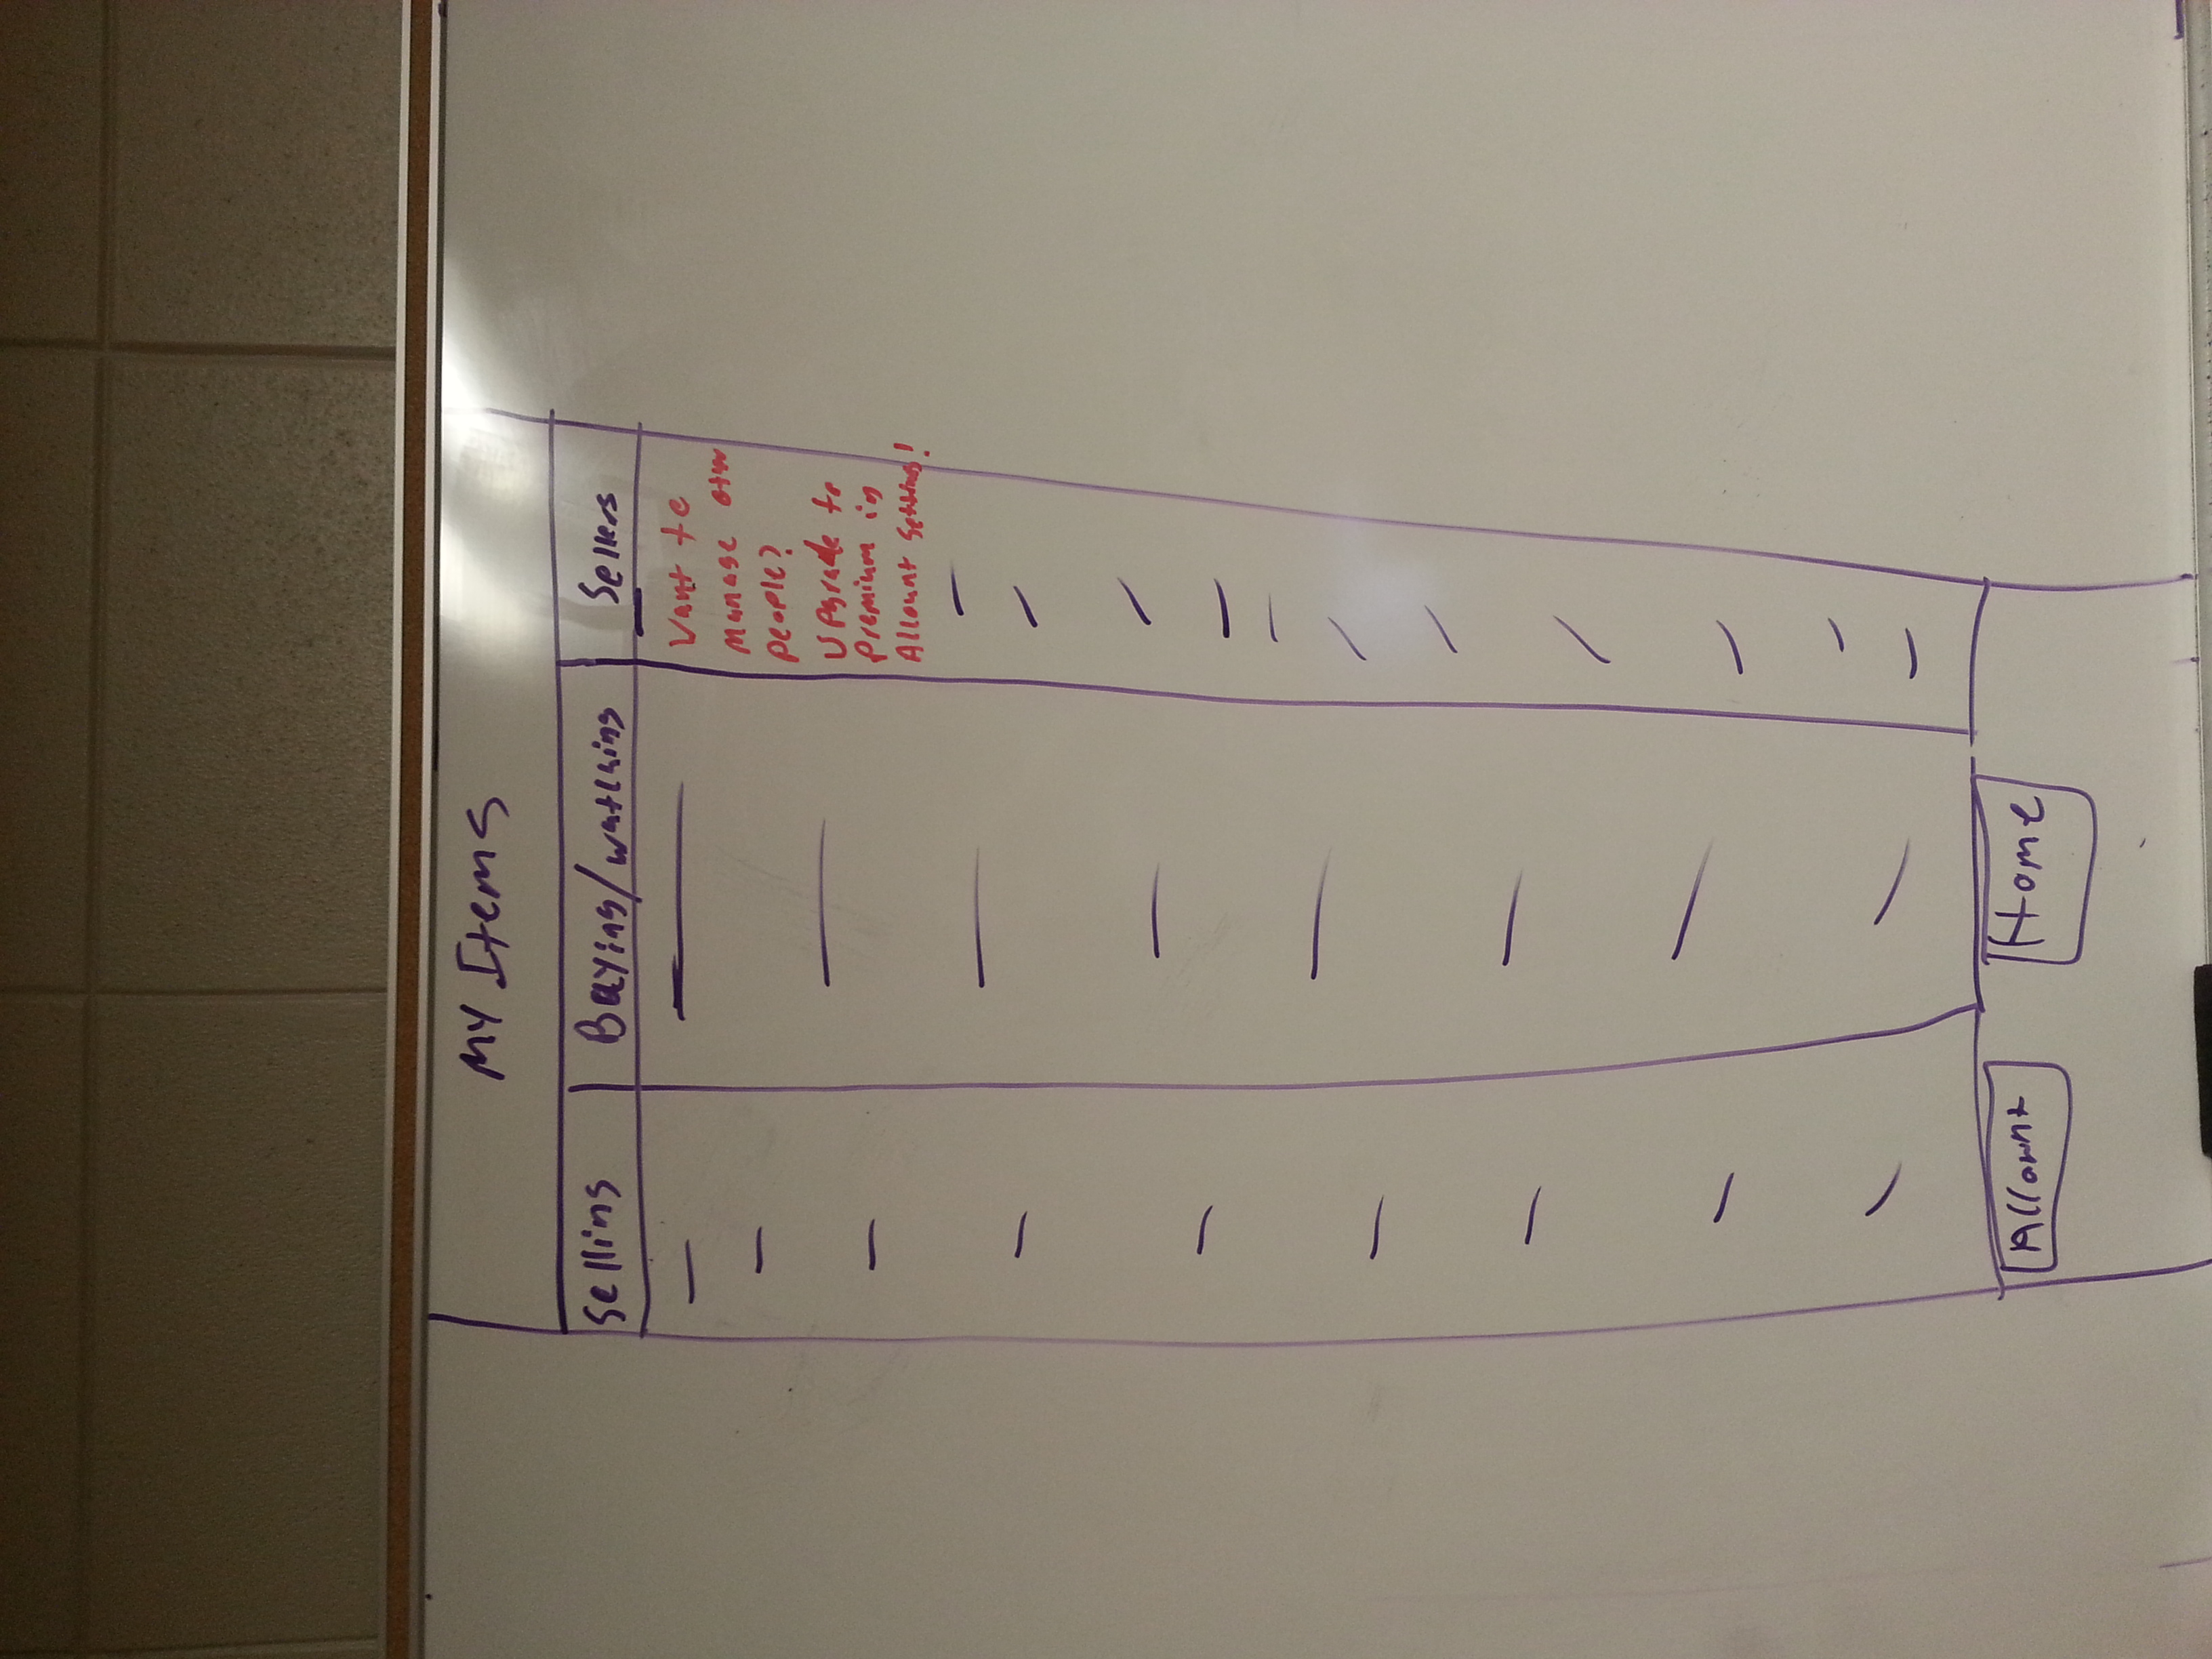 My Items
Selling
Buying/watching
Sellers
Want to
Manage other
People?
Upgrade to
Premium in
Account Settings!
Account
Home